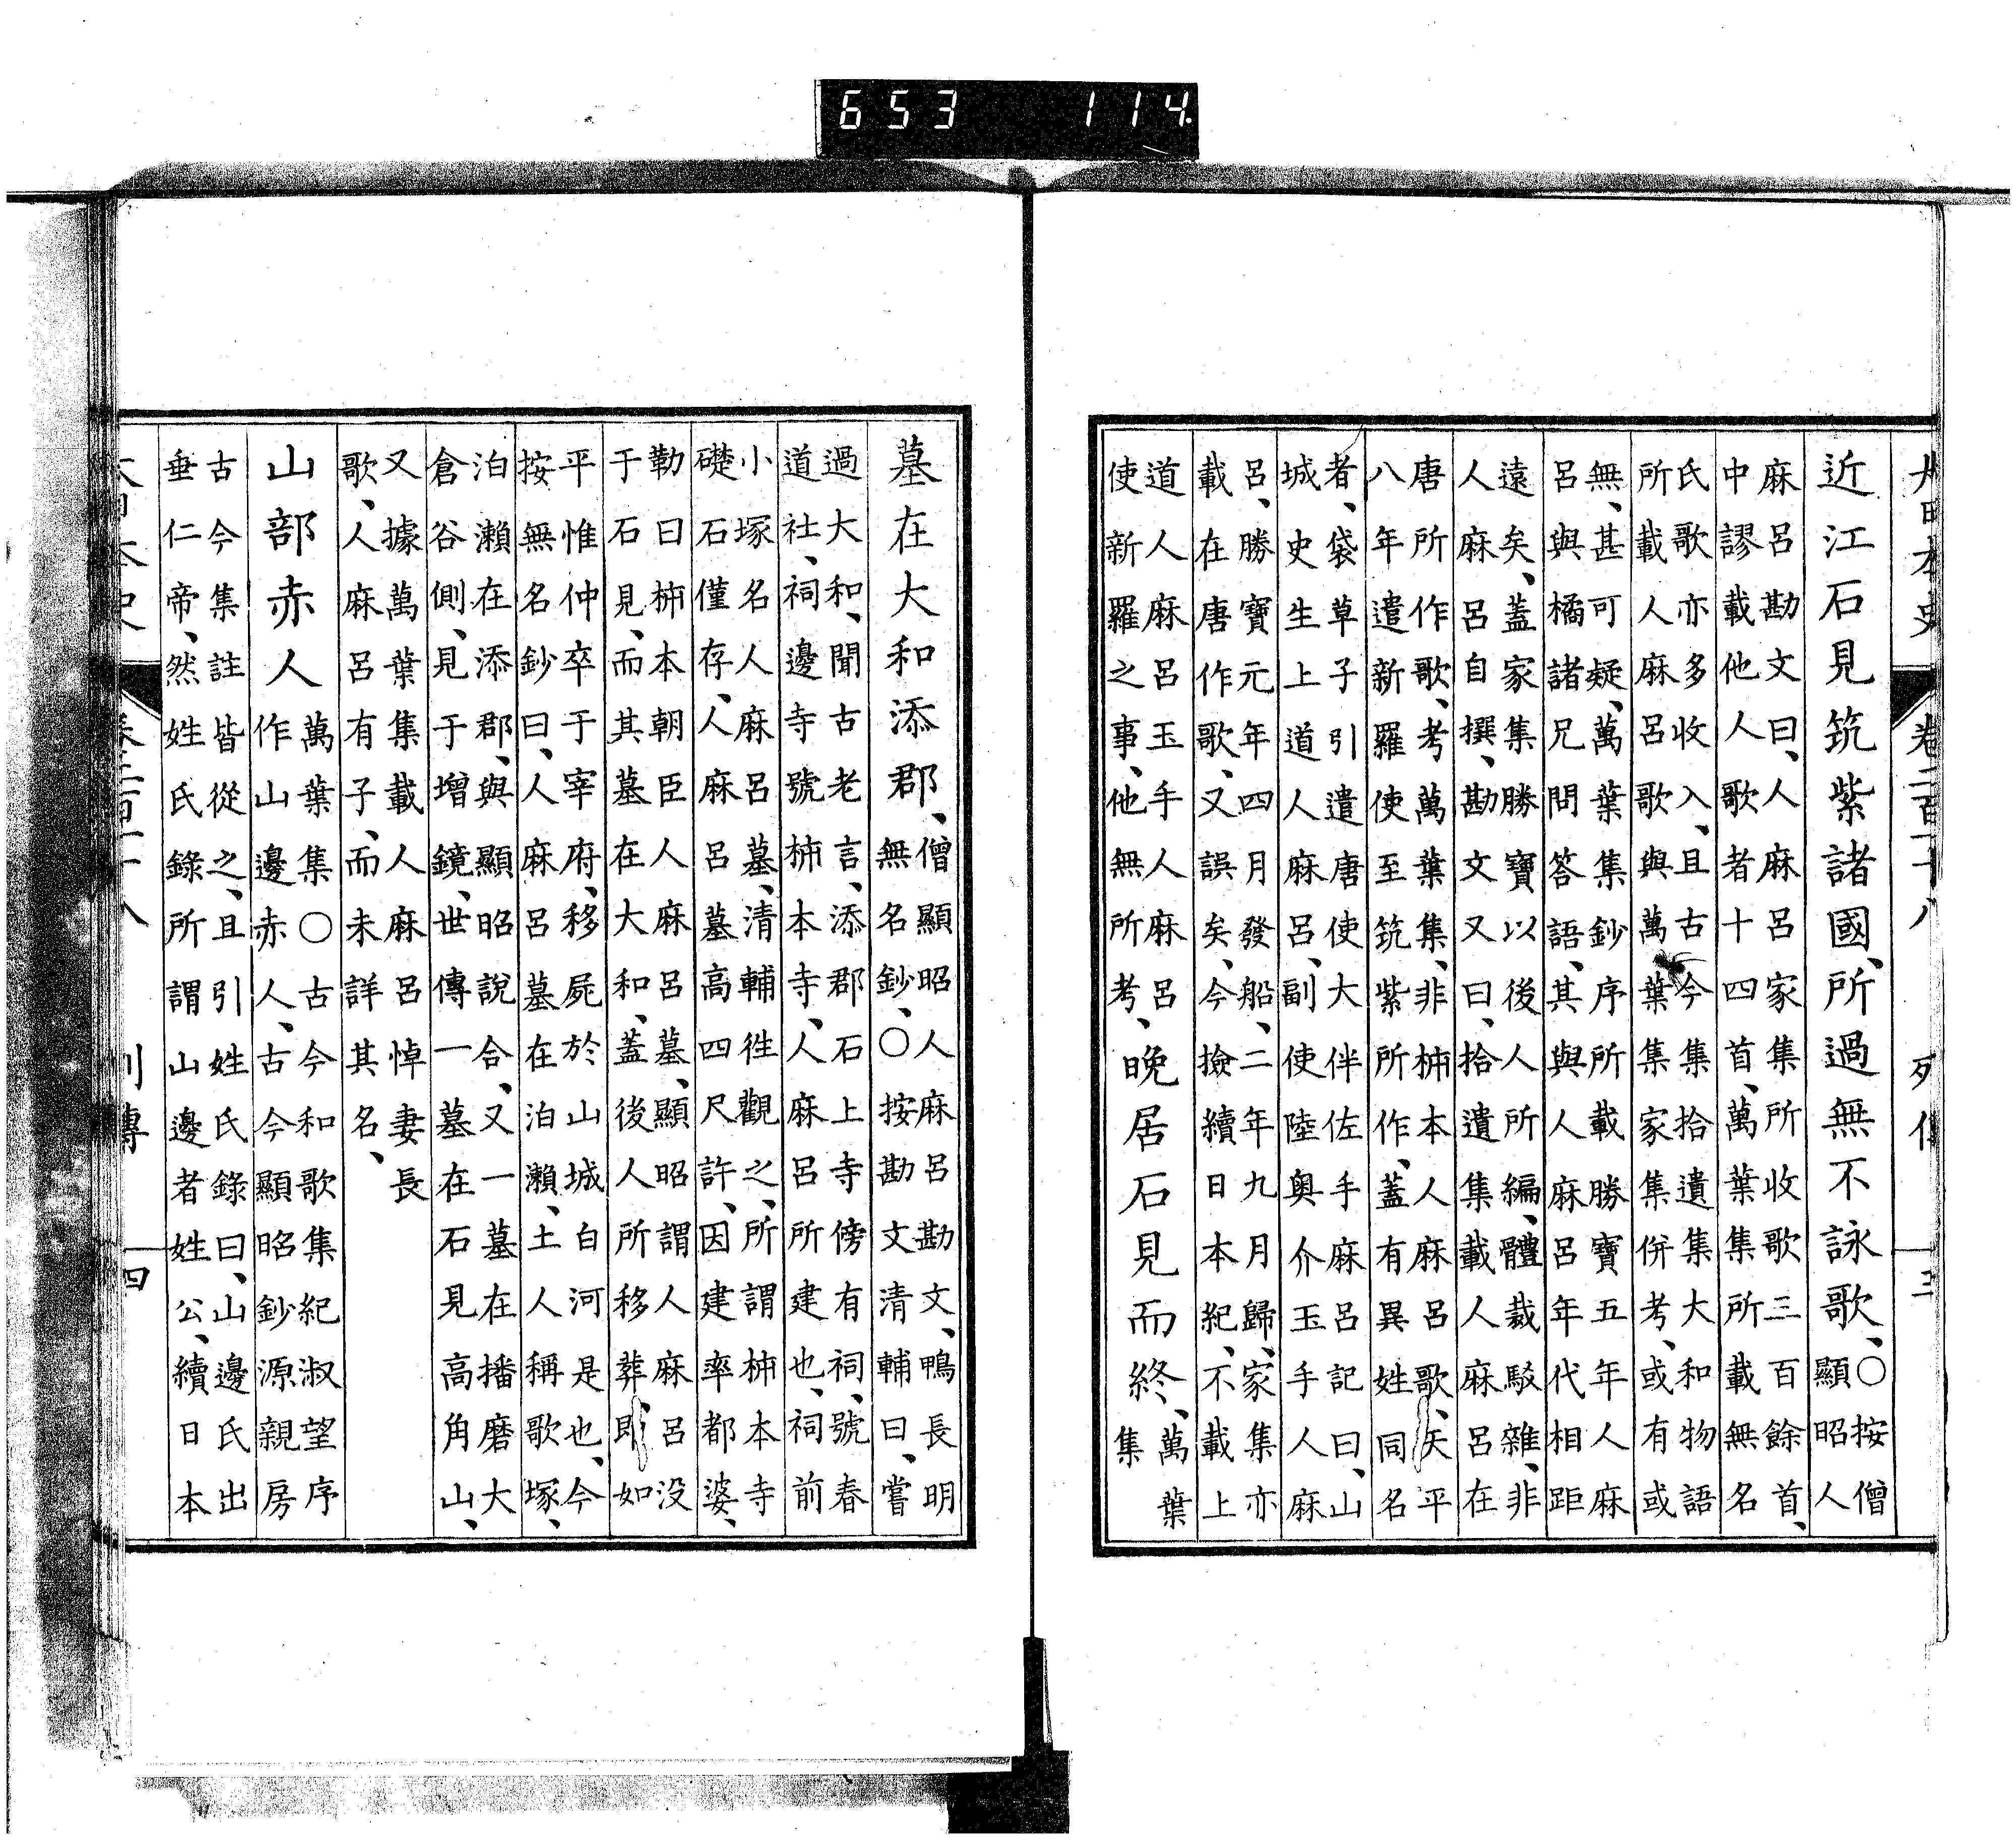 大日本史　卷二百一十八　列傳　三
近江石見筑紫諸國、所過無不詠歌、○按僧
顯昭人
麻呂勘文曰、人麻呂家集所收歌三百餘首、
中謬載他人歌者十四首、萬葉集所載無名
氏歌亦多收入、且古今集拾遺集大和物語
所載人麻呂歌與萬葉集家集併考、或有或
無、甚可疑、萬葉集鈔序所載勝寶五年人麻
呂與橘諸兄問答語、其與人麻呂年代相距
遠矣、蓋家集勝寶以後人所編、體裁駁雜、非
人麻呂自撰、勘文又曰、拾遺集載人麻呂在
唐所作歌、考萬葉集、非柿本人麻呂歌、天平
八年遣新羅使至筑紫所作、蓋有異姓同名
者、袋草子引遣唐使大伴佐手麻呂記曰、山
城史生上道人麻呂、副使陸奥介玉手人麻
呂、勝寶元年四月發船、二年九月歸、家集亦
載在唐作歌、又誤矣、今撿續日本紀、不載上
道人麻呂玉手人麻呂
使新羅之事、他無所考、晚居石見而終、萬葉
集
墓在大和添郡、僧顯昭人麻呂勘文、鴨長明
無名鈔、○按勘文清輔曰、嘗
過大和、聞古老言、添郡石上寺傍有祠、號春
道社、祠邊寺號柿本寺、人麻呂所建也、祠前
小塚名人麻呂墓、清輔徃觀之、所謂柿本寺
礎石僅存、人麻呂墓高四尺許、因建率都婆、
勒曰柿本朝臣人麻呂墓、顯昭謂人麻呂没
于石見、而其墓在大和、蓋後人所移葬、即如
平惟仲卒于宰府、移屍於山城白河是也、今
按無名鈔曰、人麻呂墓在泊瀨、土人稱歌塚、
泊瀨在添郡、與顯昭說合、又一墓在播磨大
倉谷側、見于增鏡、世傳一墓在石見高角山、
又據萬葉集載人麻呂悼妻長
歌、人麻呂有子、而未詳其名、
山部赤人萬葉集○古今和歌集紀淑望序
作山邊赤人、古今顯昭鈔源親房
古今集註皆從之、且引姓氏錄曰、山邊氏出
垂仁帝、然姓氏錄所謂山邊者姓公、續日本
大日本史　卷二百一十八　列傳　四
653 114.